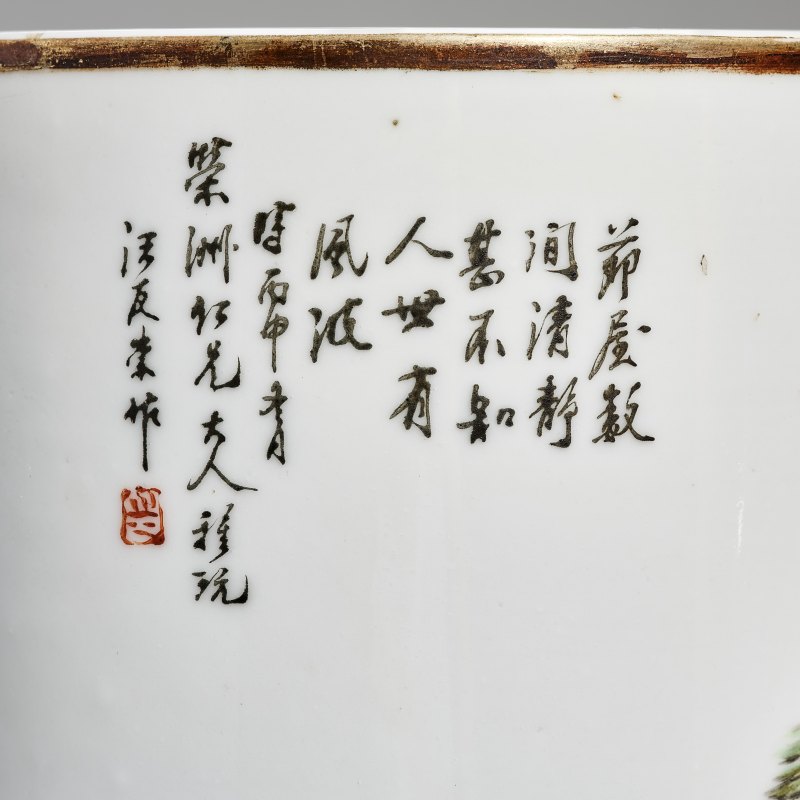 茆屋數
間清靜
甚不知
人世有
風波
時丙申冬月
榮洲仁兄大人雅玩
汪友棠作